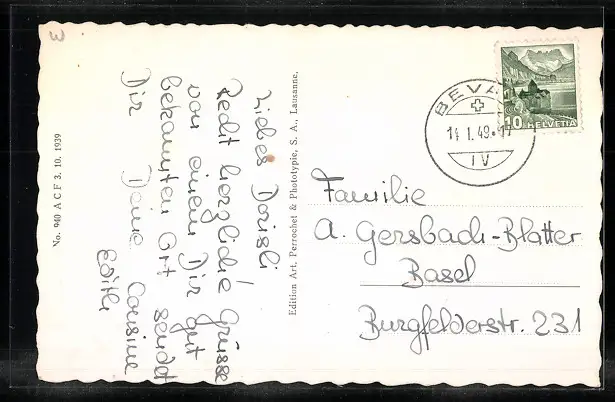 3
Liebes Dorisli
Recht herzliche Grüsse
von einem Dir gut
bekannten Ort sendet
Dir Deine Cousine
Edith
No. 940 A C F 3. 10. 1939
Edition Art. Perrochet & Phototypie, S. A., Lausanne.
BEVA
14.1.49.-17
IV
10 HELVETIA
Familie
A. Gersbach-Blatter
Basel
Burgfelderstr. 231